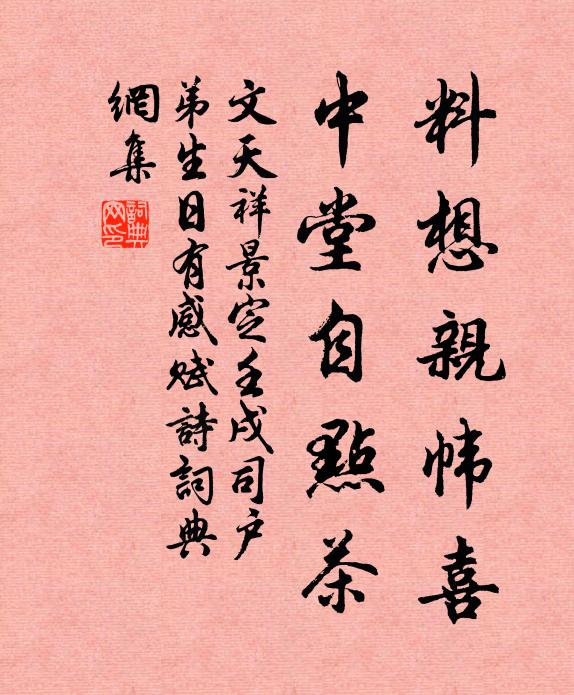 料想親幃喜
中堂自點茶
文天祥景定壬戌司户
弟生日有感賦詩詞典
網集
詞典
网印